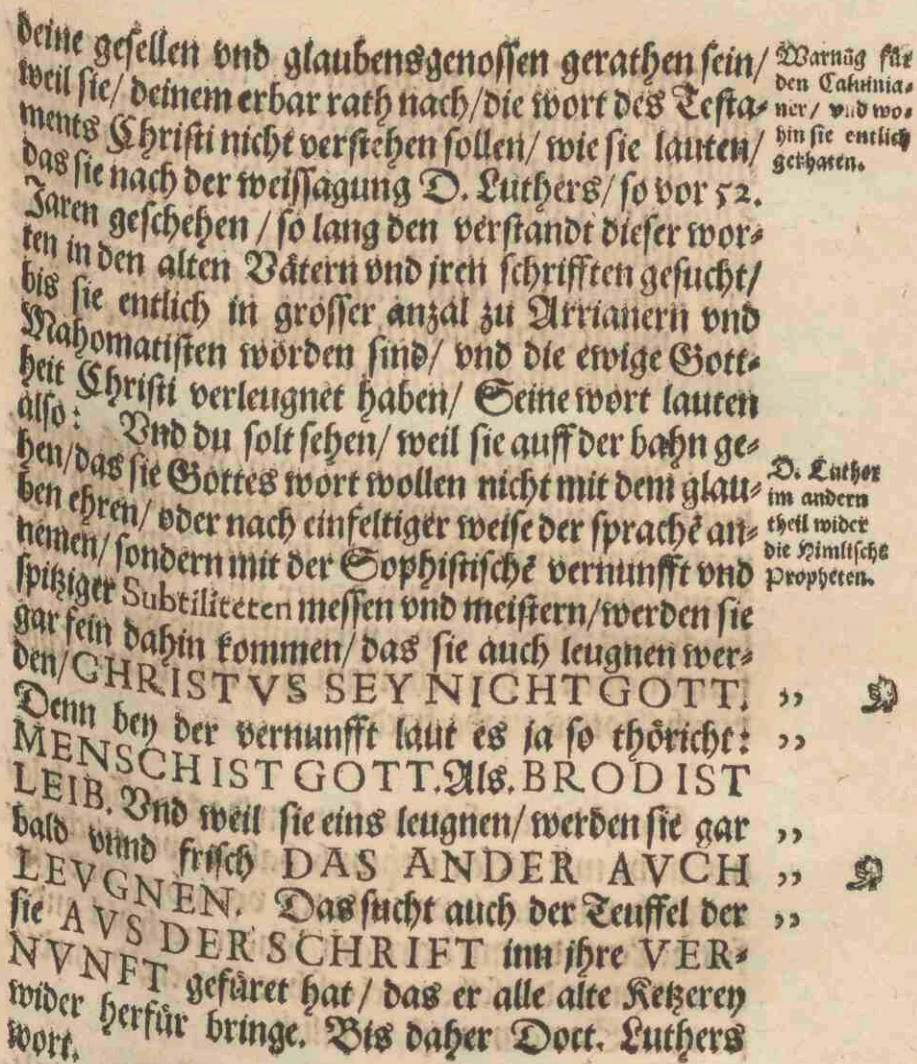 deine gesellen vnd glaubensgenossen gerathen sein/
weil sie/ deinem erbar rath nach/ die wort des Testa-
ments Christi nicht verstehen sollen/ wie sie lauten/
das sie nach der weissagung D. Luthers/ so vor 52.
Jaren geschehen / so lang den verstandt dieser wor-
ten in den alten Vätern vnd jren schrifften gesucht/
bis sie entlich in grosser anzal zu Arrianern vnd
Mahomatisten worden sind/ vnd die ewige Gott-
heit Christi verleugnet haben/ Seine wort lauten
also: Vnd du solt sehen/ weil sie auff der bahn ge-
hen/ das sie Gottes wort wollen nicht mit dem glau-
ben ehren/ oder nach einfeltiger weise der sprachẽ an-
nemen/ sondern mit der Sophistischẽ vernunfft vnd
spitziger Subtiliteten messen vnd meistern/ werden sie
gar fein dahin kommen/ das sie auch leugnen wer-
den/ CHRISTVS SEY NICHT GOTT. ,,
Denn bey der vernunfft laut es ja so thöricht: ,,
MENSCH IST GOTT. Als. BROD IST
LEIB. Vnd weil sie eins leugnen/ werden sie gar ,,
bald vnnd frisch DAS ANDER AVCH ,,
LEVGNEN. Das sucht auch der Teuffel der ,,
sie AVS DER SCHRIFT inn jhre VER-
NVNFT gefüret hat / das er alle alte Ketzerey
wider herfür bringe. Bis daher Doct. Luthers
wort.
Warnũg für
den Caluinia-
ner/ vnd wo-
hin sie entlich
gerhaten.
D. Luther
im andern
theil wider
die Himlische
Propheten.